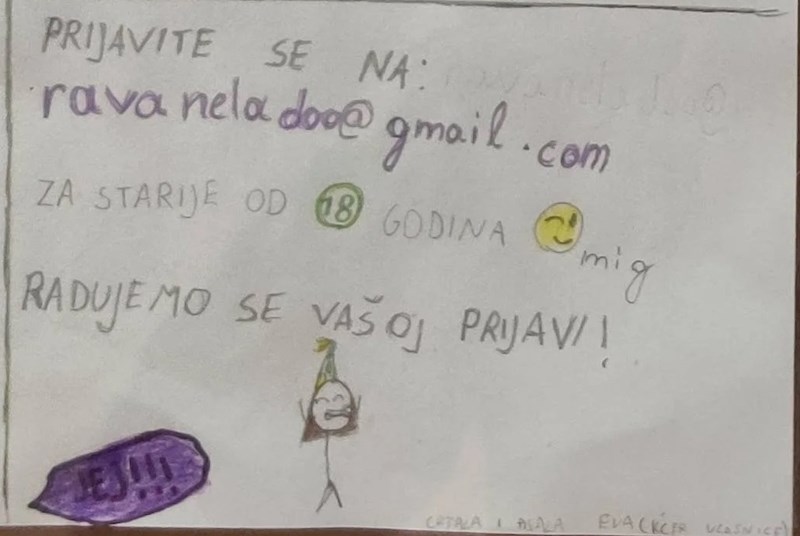 PRIJAVITE SE NA:
ravaneladoo@gmail.com
ZA STARIJE OD 18 GODINA
mig
RADUJEMO SE VAŠOJ PRIJAVI!
JEJ!!!
CRTALA I PISALA EVA (KĆER VLASNICE)